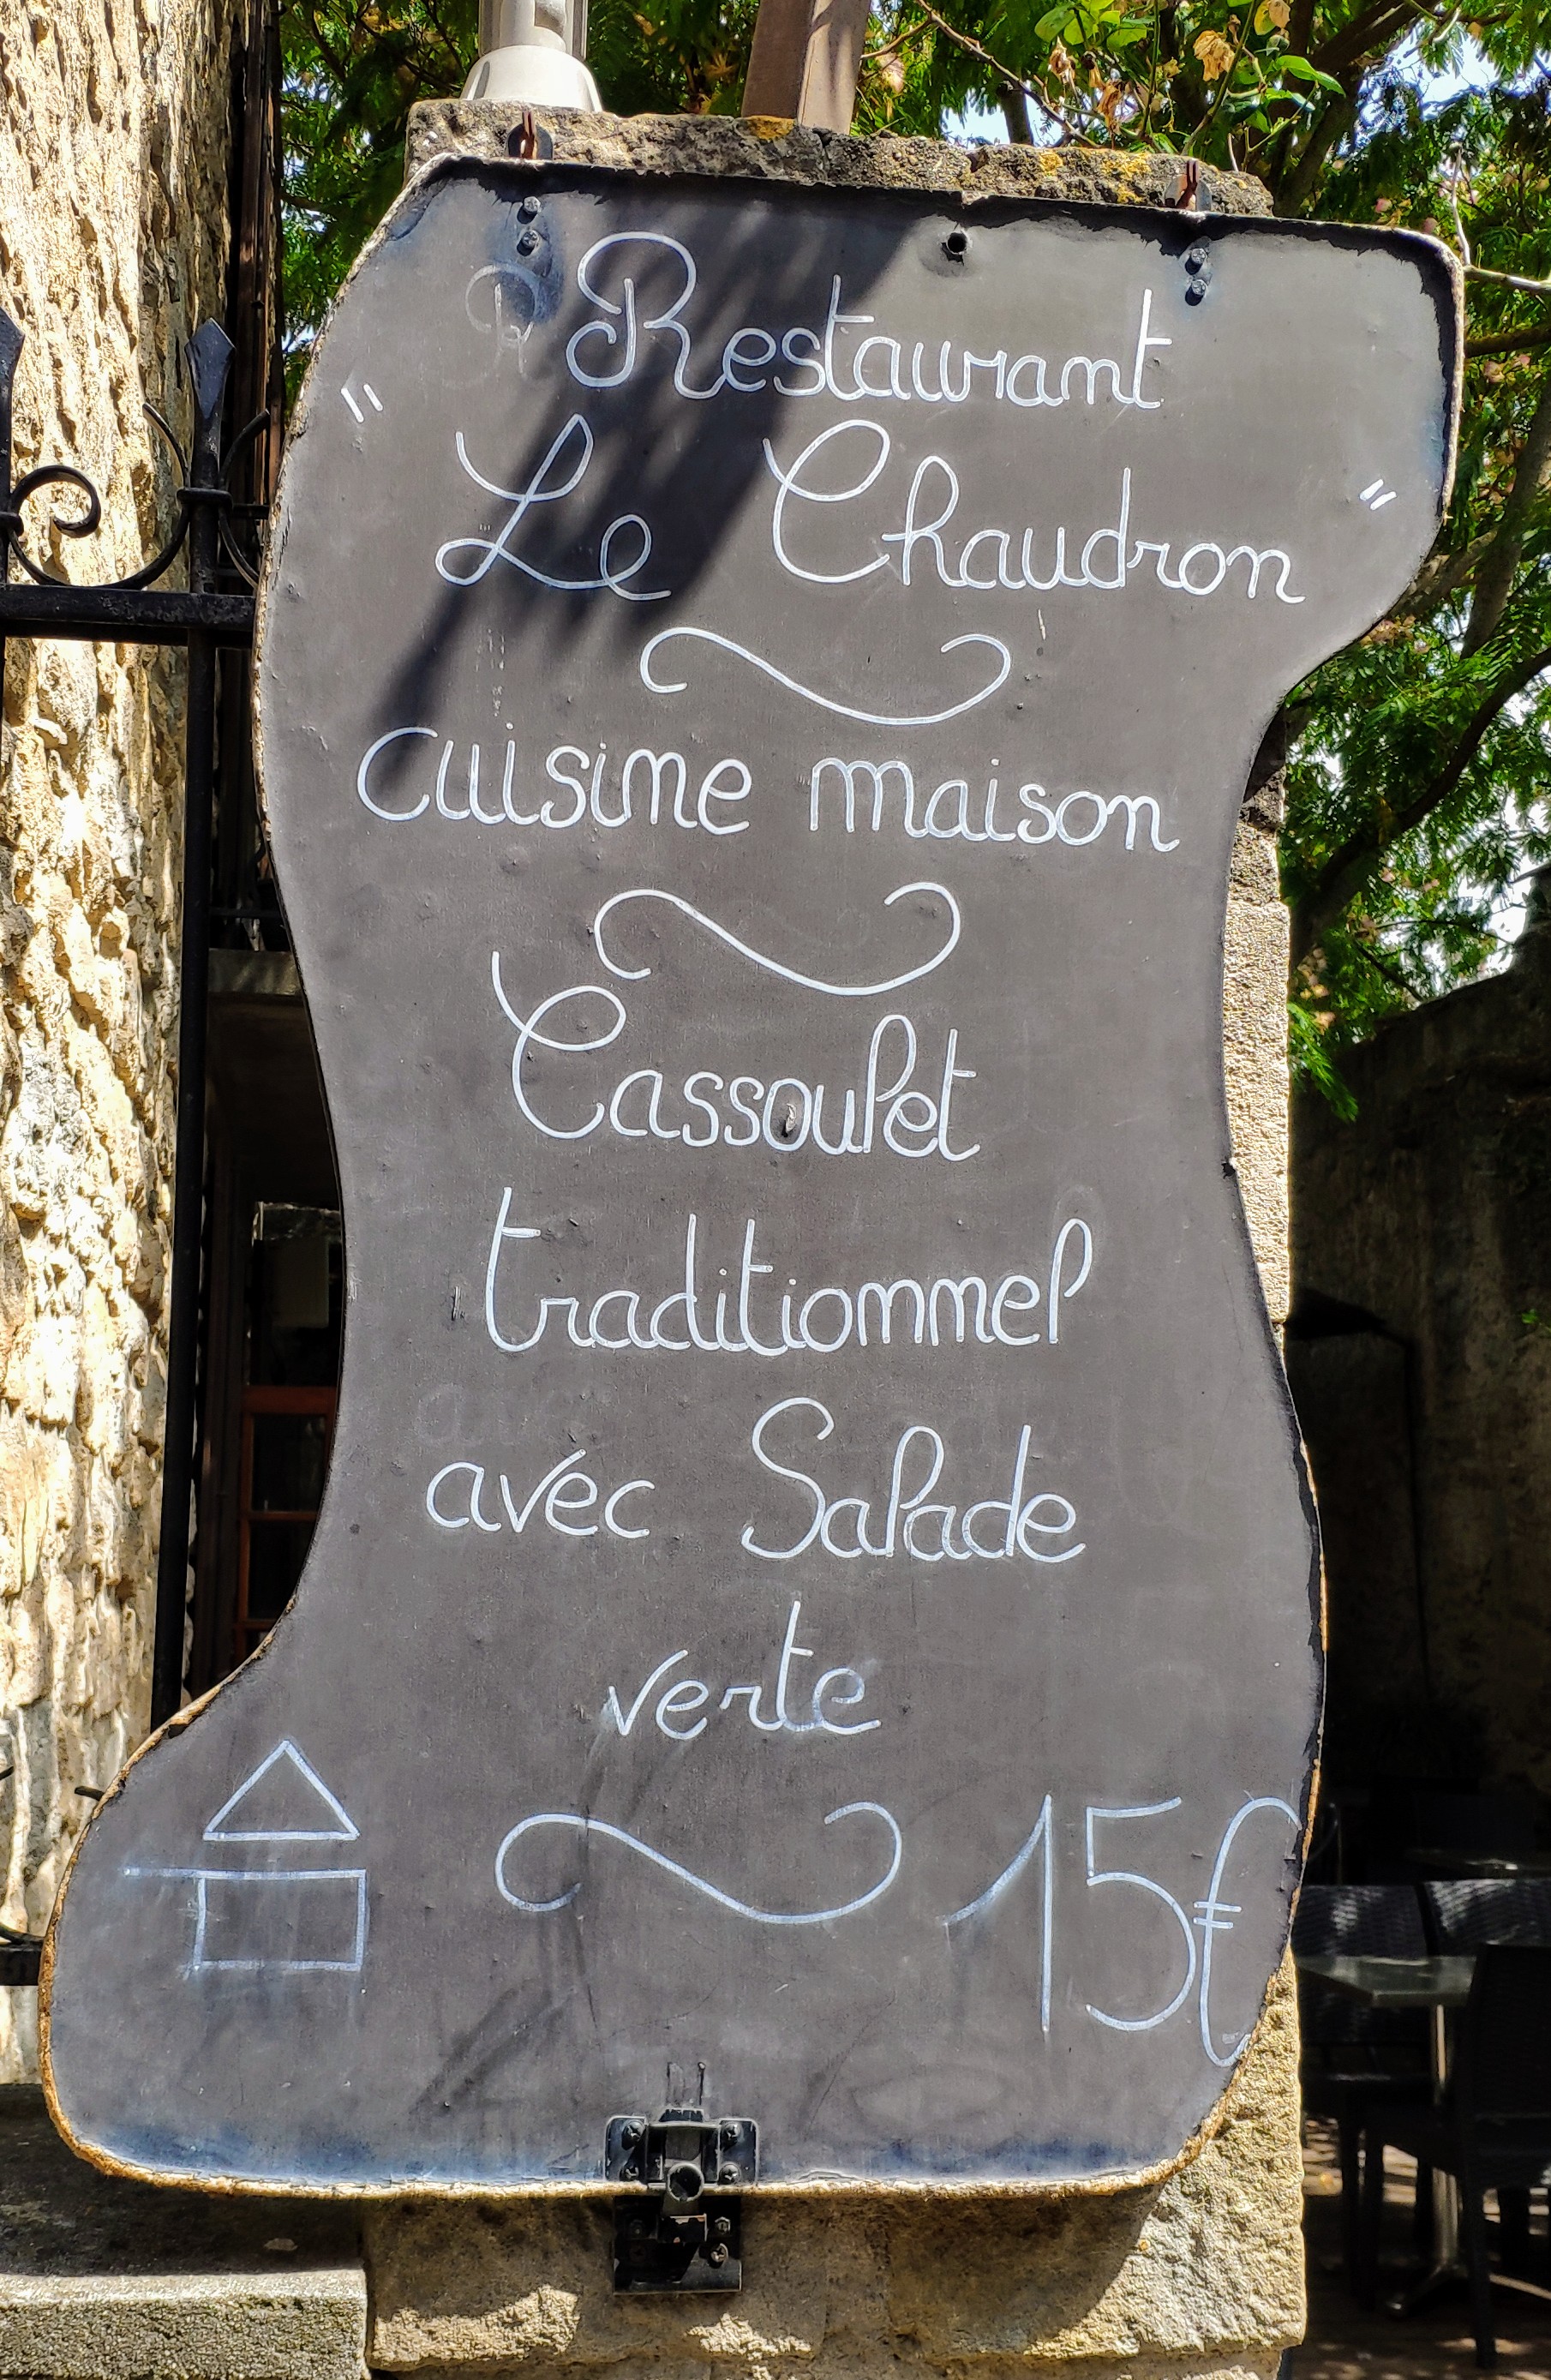 Restaurant
" Le Chaudron "
cuisine maison
Cassoulet
traditionnel
avec Salade
verte
15€